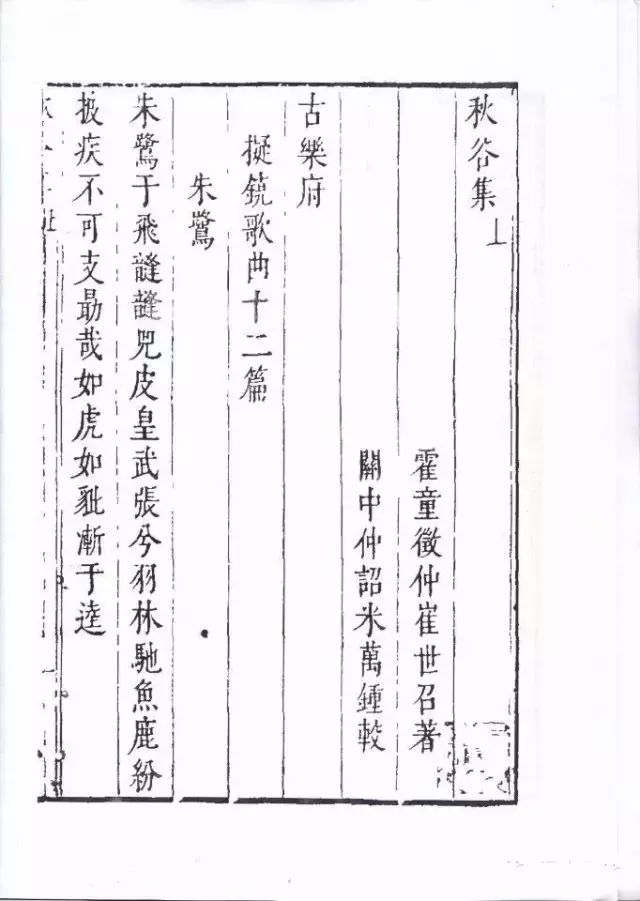 秋谷集上
霍童徵仲崔世召著
關中仲詔米萬鍾較
古樂府
擬鐃歌曲十二篇
朱鷺
朱鷺于飛韼韼兕皮皇武張兮羽林馳魚鹿紛
披疾不可支勗哉如虎如豼漸于逵